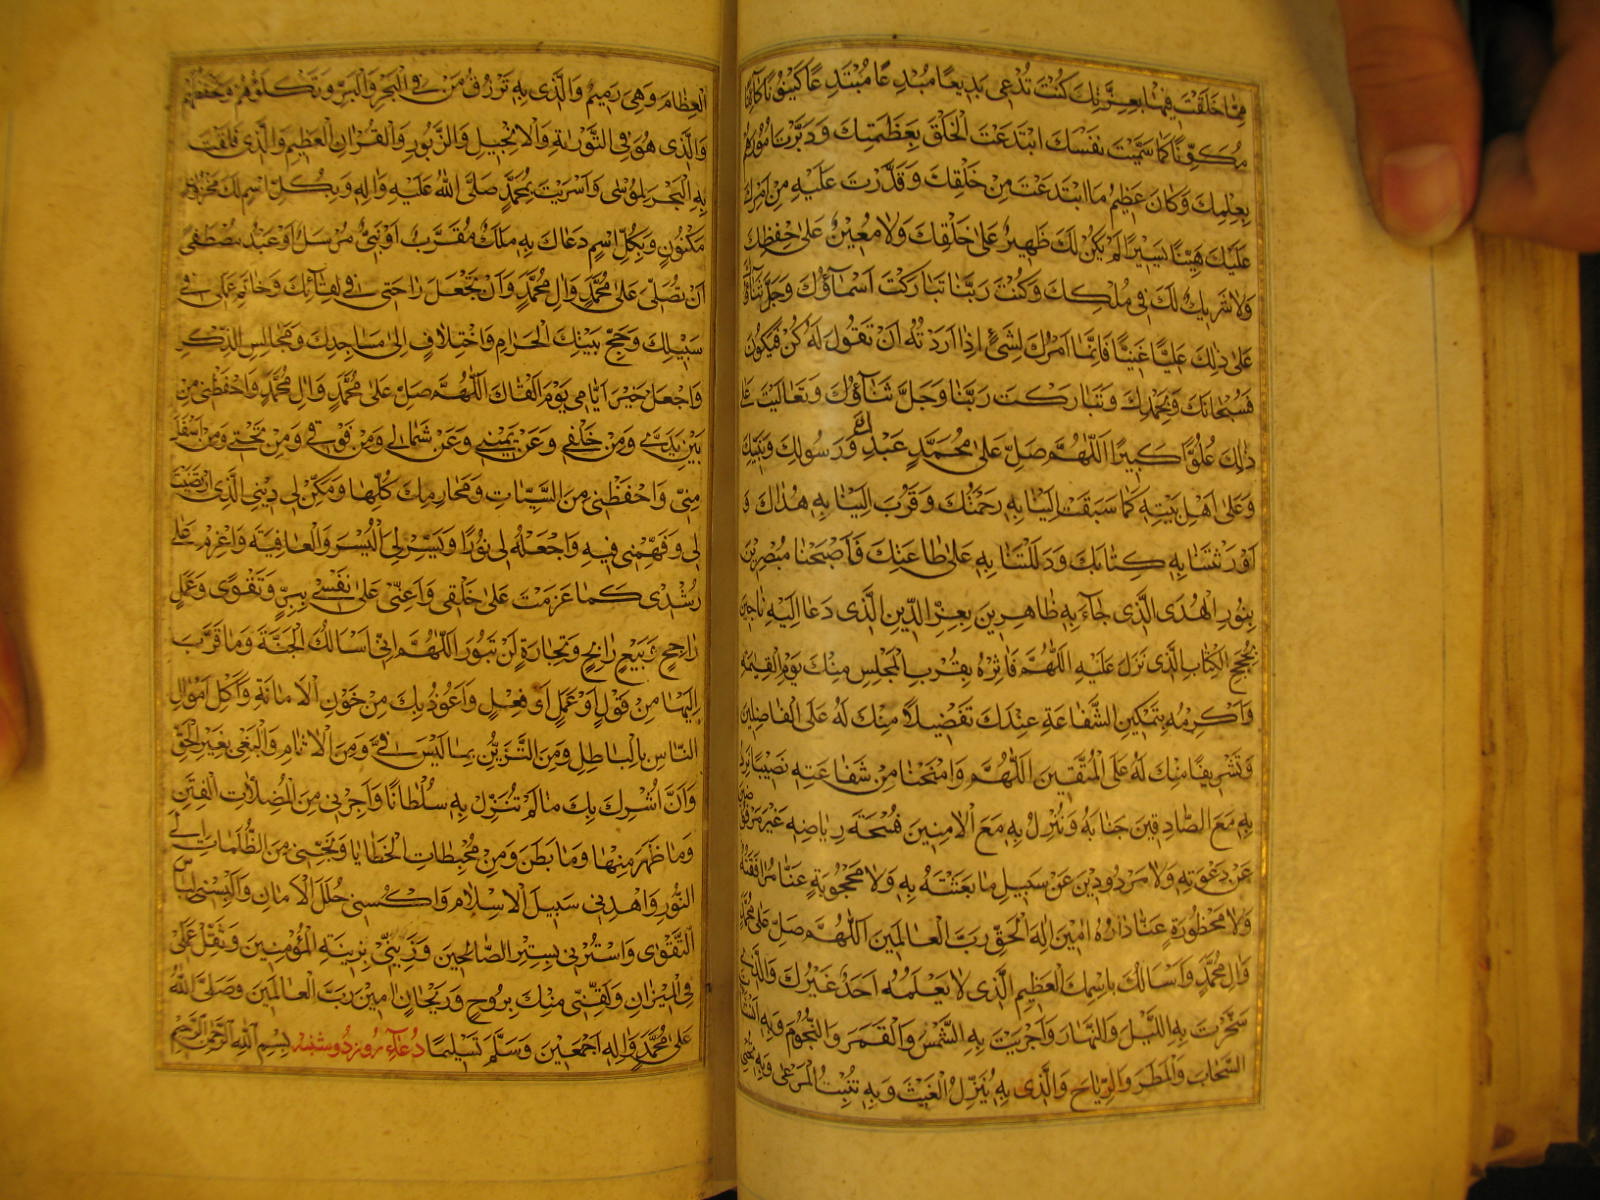 مِمَّا خَلَقْتَ فِيهَا بِعِزَّتِكَ كُنْتَ تُدْعَى بَدِيعًا مُبْدِعًا مُبْتَدِعًا كَيْنُونًا كَائِنًا
مُكَوِّنًا كَمَا سَمَّيْتَ نَفْسَكَ ابْتَدَعْتَ الْخَلْقَ بِعَظَمَتِكَ وَدَبَّرْتَ اُمُورَهُمْ
بِعِلْمِكَ وَكَانَ عَظِيمُ مَا ابْتَدَعْتَ مِنْ خَلْقِكَ وَقَدَّرْتَ عَلَيْهِ مِنْ اَمْرِكَ
عَلَيْكَ هَيِّنًا يَسِيرًا لَمْ يَكُنْ لَكَ ظَهِيرٌ عَلَى خَلْقِكَ وَلَا مُعِينٌ عَلَى حِفْظِكَ
وَلَا شَرِيكٌ لَكَ فِي مُلْكِكَ وَكُنْتَ رَبَّنَا تَبَارَكَتْ اَسْمَاؤُكَ وَجَلَّ ثَنَاؤُكَ
عَلَى ذٰلِكَ عَلِيًّا غَنِيًّا فَاِنَّمَا اَمْرُكَ لِشَيْءٍ اِذَا اَرَدْتَهُ اَنْ تَقُولَ لَهُ كُنْ فَيَكُونُ
فَسُبْحَانَكَ وَبِحَمْدِكَ وَتَبَارَكْتَ رَبَّنَا وَجَلَّ ثَنَاؤُكَ وَتَعَالَيْتَ عَلَى
ذٰلِكَ عُلُوًّا كَبِيرًا اَللّٰهُمَّ صَلِّ عَلَى مُحَمَّدٍ عَبْدِكَ وَرَسُولِكَ وَنَبِيِّكَ
وَعَلَى اَهْلِ بَيْتِهِ كَمَا سَبَقَتْ اِلَيْنَا بِهِ رَحْمَتُكَ وَقَرُبَ اِلَيْنَا بِهِ هُدَاكَ وَ
اَوْرَثْتَنَا بِهِ كِتَابَكَ وَدَلَلْتَنَا بِهِ عَلَى طَاعَتِكَ فَاَصْبَحْنَا مُبْصِرِينَ
بِنُورِ الْهُدَى الَّذِي جَاءَ بِهِ ظَاهِرِينَ بِعِزِّ الدِّينِ الَّذِي دَعَا اِلَيْهِ نَاجِينَ
بِحُجَجِ الْكِتَابِ الَّذِي نَزَلَ عَلَيْهِ اَللّٰهُمَّ فَاٰثِرْهُ بِقُرْبِ الْمَجْلِسِ مِنْكَ يَوْمَ الْقِيٰمَةِ
وَاَكْرِمْهُ بِتَمْكِينِ الشَّفَاعَةِ عِنْدَكَ تَفْضِيلًا مِنْكَ لَهُ عَلَى الْفَاضِلِينَ
وَتَشْرِيفًا مِنْكَ لَهُ عَلَى الْمُتَّقِينَ اَللّٰهُمَّ وَامْنَحْنَا مِنْ شَفَاعَتِهِ نَصِيبًا نَرِدُ
بِهِ مَعَ الصَّادِقِينَ جَنَابَهُ وَنَنْزِلُ بِهِ مَعَ الْاٰمِنِينَ فُسْحَةَ رِيَاضِهِ غَيْرَ مَرْفُوضِينَ
عَنْ دَعْوَتِهِ وَلَا مَرْدُودِينَ عَنْ سَبِيلِ مَا بَعَثْتَهُ بِهِ وَلَا مَحْجُوبَةٍ عَنَّا مُرَافَقَتُهُ
وَلَا مَحْظُورَةٍ عَنَّا دَارُهُ اٰمِينَ اِلٰهَ الْحَقِّ رَبَّ الْعَالَمِينَ اَللّٰهُمَّ صَلِّ عَلَى مُحَمَّدٍ
وَاٰلِ مُحَمَّدٍ وَاَسْاَلُكَ بِاسْمِكَ الْعَظِيمِ الَّذِي لَا يَعْلَمُهُ اَحَدٌ غَيْرُكَ وَالَّذِي
سَخَّرْتَ بِهِ اللَّيْلَ وَالنَّهَارَ وَاَجْرَيْتَ بِهِ الشَّمْسَ وَالْقَمَرَ وَالنُّجُومَ وَبِهِ اَنْشَأْتَ
السَّحَابَ وَالْمَطَرَ وَالرِّيَاحَ وَالَّذِي بِهِ يُنَزِّلُ الْغَيْثَ وَبِهِ تُنْبِتُ الْمَرْعَى وَبِهِ تُحْيِي
الْعِظَامَ وَهِيَ رَمِيمٌ وَالَّذِي بِهِ تَرْزُقُ مَنْ فِي الْبَحْرِ وَالْبَرِّ وَتَكْلَؤُهُمْ وَتَحْفَظُهُمْ
وَالَّذِي هُوَ فِي التَّوْرٰيةِ وَالْاِنْجِيلِ وَالزَّبُورِ وَالْقُرْاٰنِ الْعَظِيمِ وَالَّذِي فَلَقْتَ
بِهِ الْبَحْرَ لِمُوسَى وَاَسْرَيْتَ بِمُحَمَّدٍ صَلَّى اللّٰهُ عَلَيْهِ وَاٰلِهِ وَبِكُلِّ اسْمٍ لَكَ مَخْزُونٍ
مَكْنُونٍ وَبِكُلِّ اسْمٍ دَعَاكَ بِهِ مَلَكٌ مُقَرَّبٌ اَوْ نَبِيٌّ مُرْسَلٌ اَوْ عَبْدٌ مُصْطَفًى
اَنْ تُصَلِّيَ عَلَى مُحَمَّدٍ وَاٰلِ مُحَمَّدٍ وَاَنْ تَجْعَلَ رَاحَتِي فِي لِقَائِكَ وَخَاتَمَ عَمَلِي فِي
سَبِيلِكَ وَحَجِّ بَيْتِكَ الْحَرَامِ وَاخْتِلَافٍ اِلَى مَسَاجِدِكَ وَمَجَالِسِ الذِّكْرِ
وَاجْعَلْ خَيْرَ اَيَّامِي يَوْمَ اَلْقَاكَ اَللّٰهُمَّ صَلِّ عَلَى مُحَمَّدٍ وَاٰلِ مُحَمَّدٍ وَاحْفَظْنِي مِنْ
بَيْنِ يَدَيَّ وَمِنْ خَلْفِي وَعَنْ يَمِينِي وَعَنْ شِمَالِي وَمِنْ فَوْقِي وَمِنْ تَحْتِي وَمِنْ اَسْفَلَ
مِنِّي وَاحْفَظْنِي مِنَ السَّيِّئَاتِ وَمَحَارِمِكَ كُلِّهَا وَمَكِّنْ لِي دِينِيَ الَّذِي ارْتَضَيْتَ
لِي وَفَهِّمْنِي فِيهِ وَاجْعَلْهُ لِي نُورًا وَيَسِّرْ لِيَ الْيُسْرَ وَالْعَافِيَةَ وَاعْزِمْ عَلَى
رُشْدِي كَمَا عَزَمْتَ عَلَى خَلْقِي وَاَعِنِّي عَلَى نَفْسِي بِبِرٍّ وَتَقْوًى وَعَمَلٍ
رَاجِحٍ وَبَيْعٍ رَابِحٍ وَتِجَارَةٍ لَنْ تَبُورَ اَللّٰهُمَّ اِنِّي اَسْاَلُكَ الْجَنَّةَ وَمَا قَرَّبَ
اِلَيْهَا مِنْ قَوْلٍ اَوْ عَمَلٍ اَوْ فِعْلٍ وَاَعُوذُ بِكَ مِنْ خَوْنِ الْاَمَانَةِ وَاَكْلِ اَمْوَالِ
النَّاسِ بِالْبَاطِلِ وَمِنَ التَّزَيُّنِ بِمَا لَيْسَ فِيَّ وَمِنَ الْاٰثَامِ وَالْبَغْيِ بِغَيْرِ الْحَقِّ
وَاَنْ اُشْرِكَ بِكَ مَا لَمْ تُنَزِّلْ بِهِ سُلْطَانًا وَاَجِرْنِي مِنَ الْمُضِلَّاتِ الْفِتَنِ
وَمَا ظَهَرَ مِنْهَا وَمَا بَطَنَ وَمِنْ مُحْبِطَاتِ الْخَطَايَا وَنَجِّنِي مِنَ الظُّلُمَاتِ اِلَى
النُّورِ وَاهْدِنِي سَبِيلَ الْاِسْلَامِ وَاكْسُنِي حُلَلَ الْاَمَانِ وَاَلْبِسْنِي لِبَاسَ
التَّقْوَى وَاسْتُرْنِي بِسِتْرِ الصَّالِحِينَ وَزَيِّنِّي بِزِينَةِ الْمُؤْمِنِينَ وَثَقِّلْ عَمَلِي
فِي الْمِيزَانِ وَلَقِّنِّي مِنْكَ بِرَوْحٍ وَرَيْحَانٍ اٰمِينَ رَبَّ الْعَالَمِينَ وَصَلَّى اللّٰهُ
عَلَى مُحَمَّدٍ وَاٰلِهِ اَجْمَعِينَ وَسَلَّمَ تَسْلِيمًا دُعَاءِ رُوزِ دُوشَنْبِه بِسْمِ اللّٰهِ الرَّحْمٰنِ الرَّحِيمِ